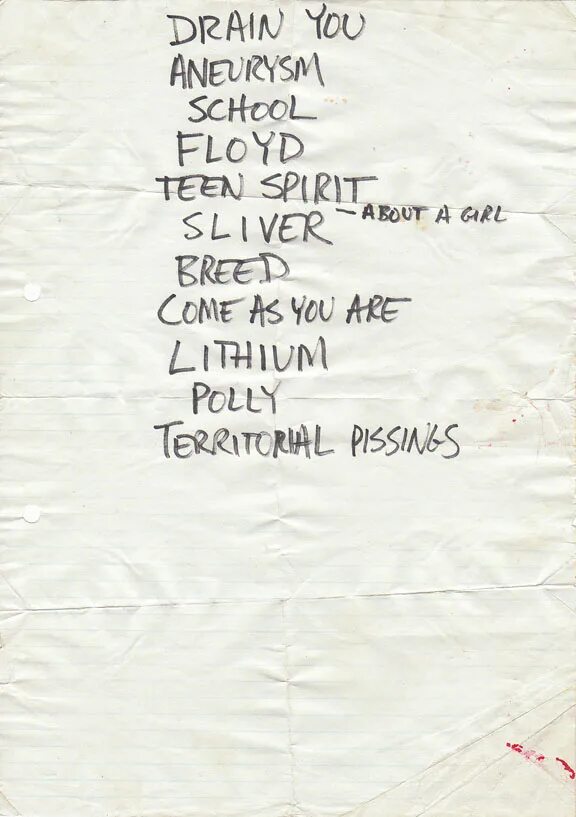 DRAIN YOU
ANEURYSM
SCHOOL
FLOYD
TEEN SPIRIT
SLIVER – ABOUT A GIRL
BREED
COME AS YOU ARE
LITHIUM
POLLY
TERRITORIAL PISSINGS